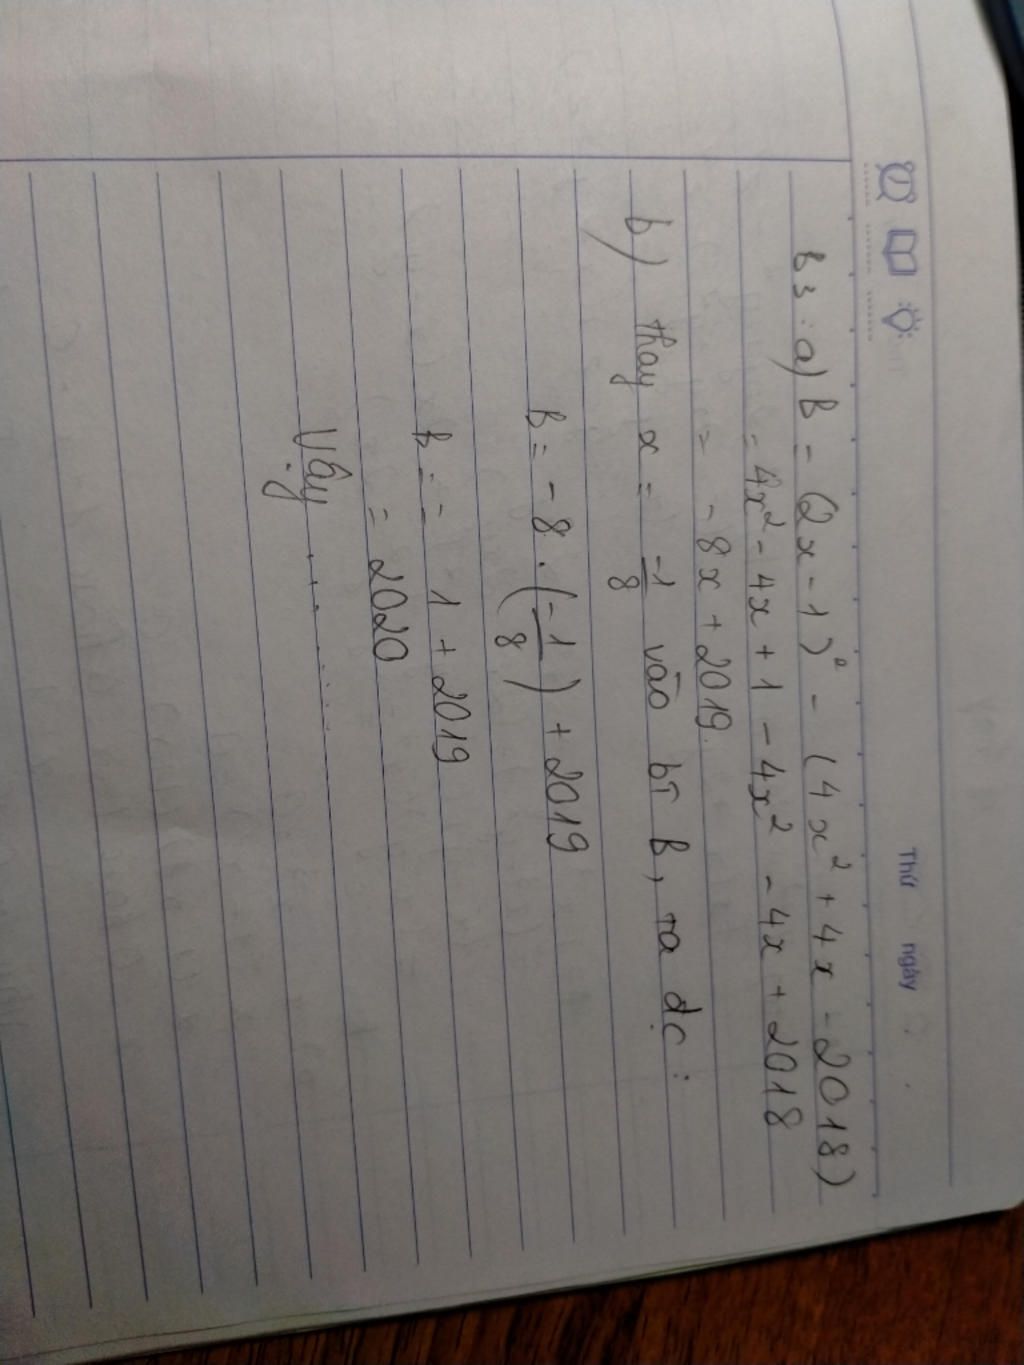 Thứ ngày
B3: a) B = (2x - 1)² - (4x² + 4x - 2018)
= 4x² - 4x + 1 - 4x² - 4x + 2018
= - 8x + 2019.
b) thay x = -1/8 vào bt B, ta đc:
B = - 8 . (-1/8) + 2019
B = - 1 + 2019
= 2020
Vậy ..........